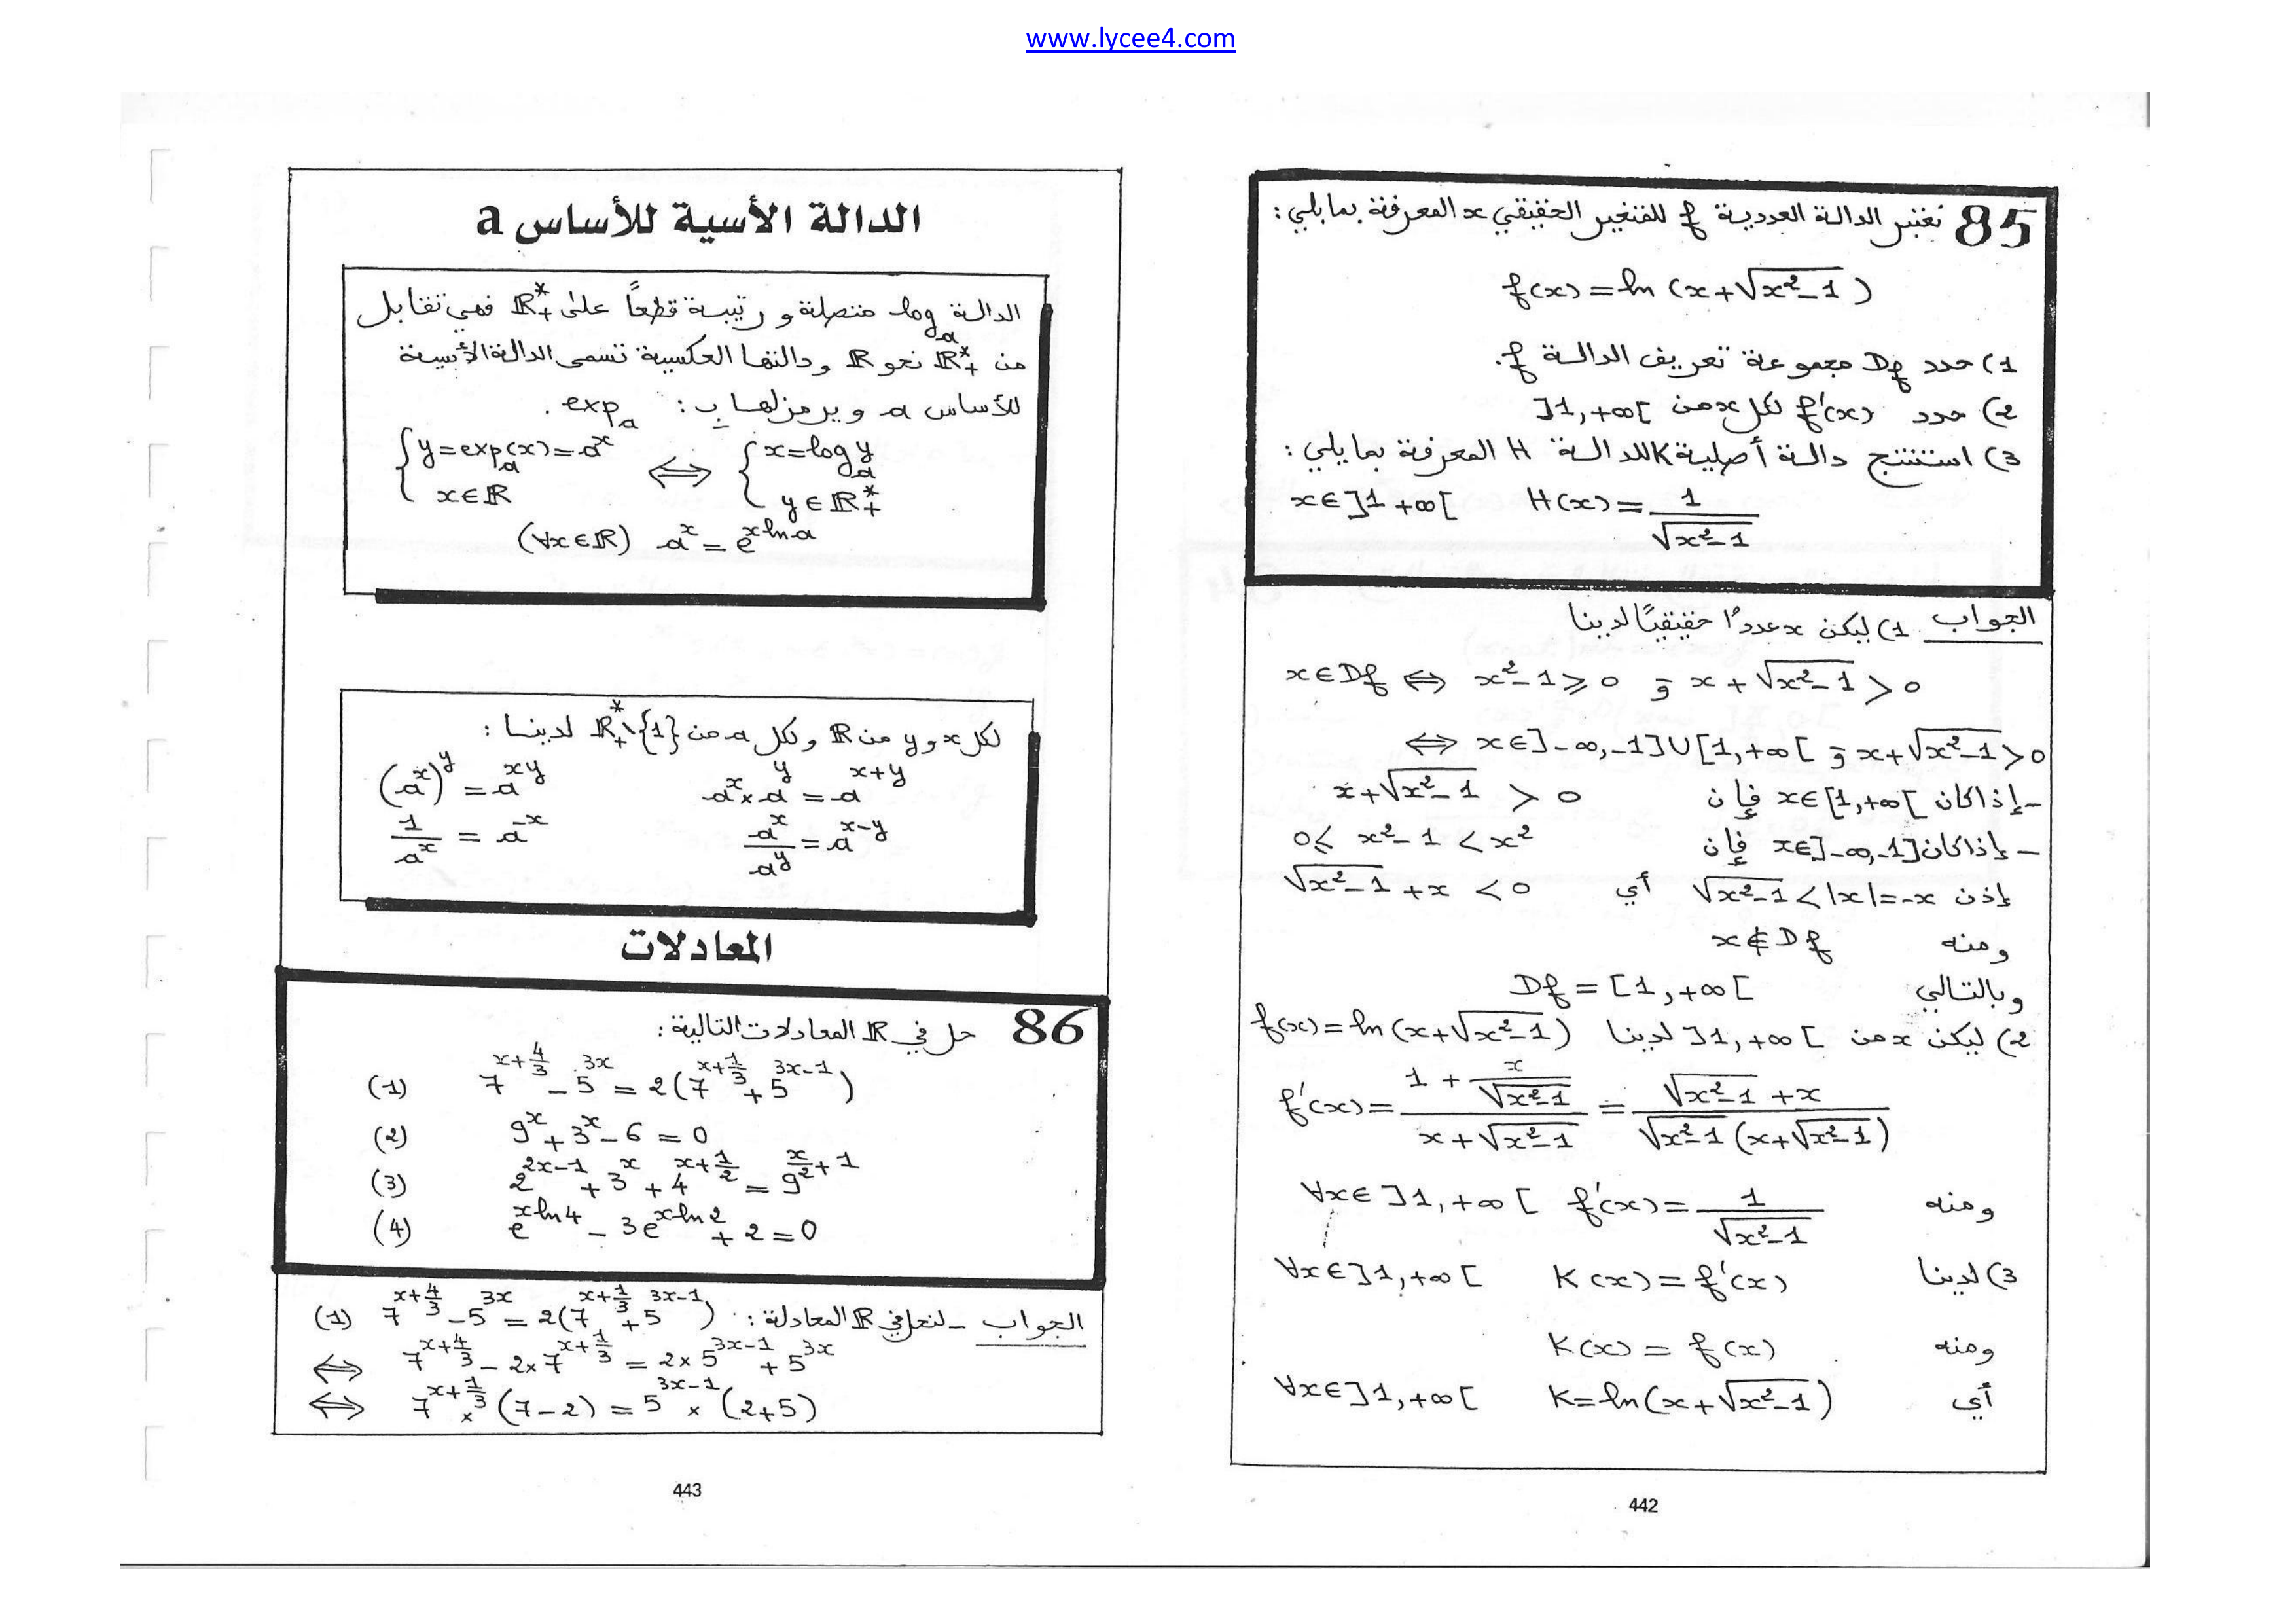 www.lycee4.com
85 نعتبر الدالة العددية f للمتغير الحقيقي x المعرفة بمايلي:
f(x) = ln(x+√(x²-1))
1) حدد Df مجموعة تعريف الدالة f.
2) حدد f'(x) لكل x من ]1,+∞[
3) استنتج دالة أصلية K للدالة H المعرفة بمايلي:
x∈]1+∞[ H(x) = 1/√(x²-1)
الجواب 1) ليكن x عددًا حقيقيًا لدينا
x∈Df ⇔ x²-1 ⩾ 0 و x+√(x²-1) > 0
⇔ x∈]-∞,-1]∪[1,+∞[ و x+√(x²-1) > 0
- إذا كان x∈[1,+∞[ فإن x+√(x²-1) > 0
- إذا كان x∈]-∞,-1] فإن 0 ⩽ x²-1 < x²
إذن √(x²-1) < |x| = -x أي √(x²-1)+x < 0
ومنه x∉Df
وبالتالي Df = [1,+∞[
2) ليكن x من ]1,+∞[ لدينا f(x) = ln(x+√(x²-1))
f'(x) = (1 + x/√(x²-1))/(x+√(x²-1)) = (√(x²-1)+x)/(√(x²-1)(x+√(x²-1)))
ومنه ∀x∈]1,+∞[ f'(x) = 1/√(x²-1)
3) لدينا K(x) = f'(x) ∀x∈]1,+∞[
ومنه K(x) = f(x)
أي K = ln(x+√(x²-1)) ∀x∈]1,+∞[
442
الدالة الأسية للأساس a
الدالة logₐ متصلة و رتيبة قطعاً على ℝ*₊ فهي تقابل
من ℝ*₊ نحو ℝ ودالتها العكسية تسمى الدالة الأسية
للأساس a ويرمز لها ب: expₐ.
{ y = expₐ(x) = a^x ⇔ { x = logₐ y
x∈ℝ y∈ℝ*₊
(∀x∈ℝ) a^x = e^(x ln a)
لكل x و y من ℝ ولكل a من ℝ*₊\{1} لدينا:
(a^x)^y = a^(xy) a^x × a^y = a^(x+y)
1/a^x = a^(-x) a^x/a^y = a^(x-y)
المعادلات
86 حل في ℝ المعادلات التالية:
(1) 7^(x+4/3) - 5^(3x) = 2(7^(x+1/3) + 5^(3x-1))
(2) 9^x + 3^x - 6 = 0
(3) 2^(2x-1) + 3^x + 4^(x+1/2) = 9^(x/2+1)
(4) e^(x ln 4) - 3e^(x ln 2) + 2 = 0
الجواب - لنحل في ℝ المعادلة: (1) 7^(x+4/3) - 5^(3x) = 2(7^(x+1/3) + 5^(3x-1))
⇔ 7^(x+4/3) - 2×7^(x+1/3) = 2×5^(3x-1) + 5^(3x)
⇔ 7^(x+1/3) × (7-2) = 5^(3x-1) × (2+5)
443